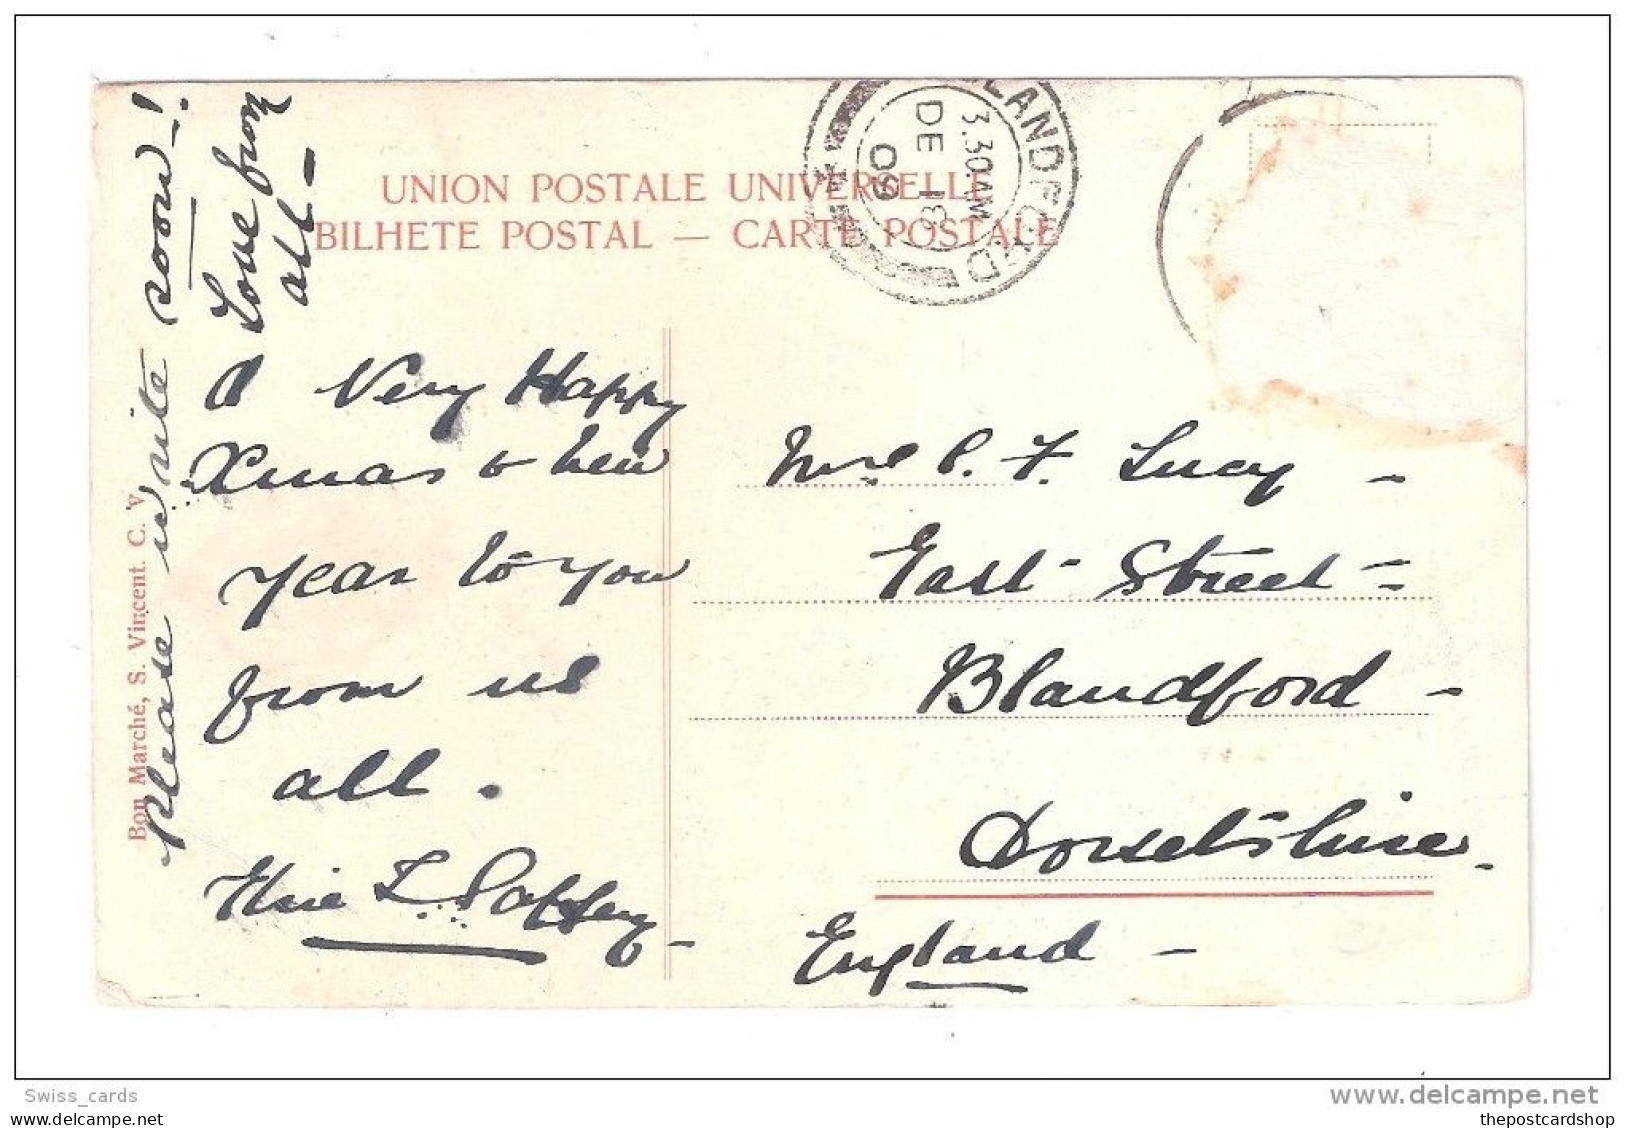 UNION POSTALE UNIVERSELLE
BILHETE POSTAL — CARTE POSTALE
BLANDFORD
3.30AM
DE 13
09
Please write soon!
Love from
all -
A Very Happy
Xmas & New
Year to you
from us
all.
Elsie L.
Bon Marché, S. Vincent. C. V.
Mrs P. F. Lucy -
East Street =
Blandford -
Dorsetshire -
England -
Swiss_cards
www.delcampe.net
thepostcardshop